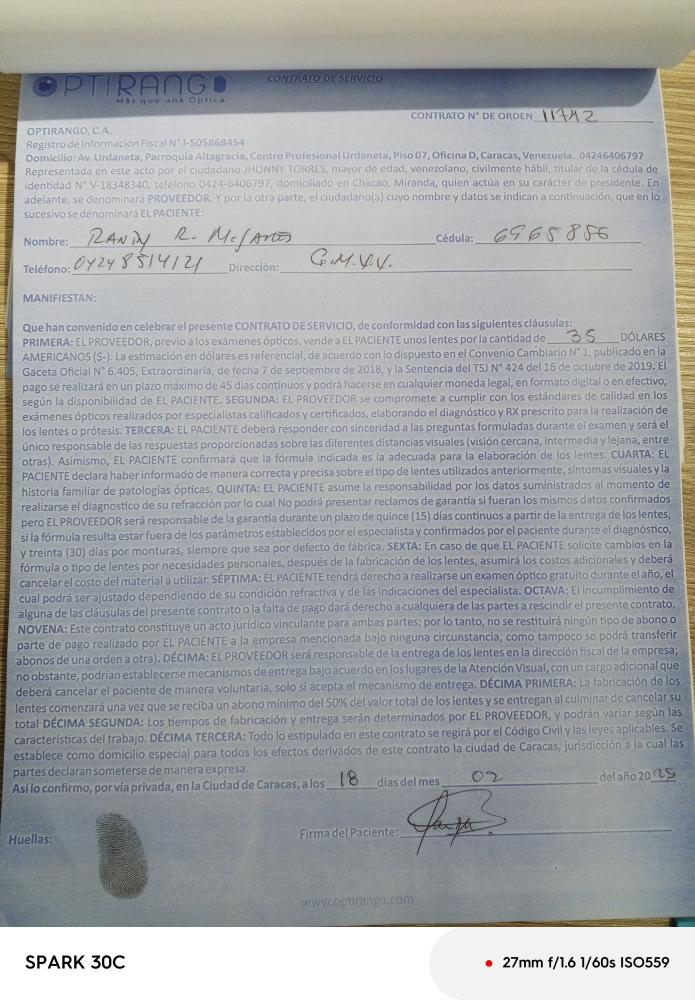 OPTIRANGO
Más que una Óptica
CONTRATO DE SERVICIO
CONTRATO N° DE ORDEN 11742
OPTIRANGO, C.A.
Registro de Información Fiscal N° J-505868454
Domicilio: Av. Urdaneta, Parroquia Altagracia, Centro Profesional Urdaneta, Piso 07, Oficina D, Caracas, Venezuela. 04246406797
Representada en este acto por el ciudadano JHONNY TORRES, mayor de edad, venezolano, civilmente hábil, titular de la cédula de
identidad N° V-18348340, teléfono 0424-6406797, domiciliado en Chacao, Miranda, quien actúa en su carácter de presidente. En
adelante, se denominará PROVEEDOR. Y por la otra parte, el ciudadano(a) cuyo nombre y datos se indican a continuación, que en lo
sucesivo se denominará EL PACIENTE:
Nombre: RANDY R. Cédula: 6965886
Teléfono: 04248514121 Dirección: G.M.V.V.
MANIFIESTAN:
Que han convenido en celebrar el presente CONTRATO DE SERVICIO, de conformidad con las siguientes cláusulas:
PRIMERA: EL PROVEEDOR, previo a los exámenes ópticos, vende a EL PACIENTE unos lentes por la cantidad de 35 DÓLARES
AMERICANOS ($-). La estimación en dólares es referencial, de acuerdo con lo dispuesto en el Convenio Cambiario N° 1, publicado en la
Gaceta Oficial N° 6.405, Extraordinaria, de fecha 7 de septiembre de 2018, y la Sentencia del TSJ N° 424 del 16 de octubre de 2019. El
pago se realizará en un plazo máximo de 45 días continuos y podrá hacerse en cualquier moneda legal, en formato digital o en efectivo,
según la disponibilidad de EL PACIENTE. SEGUNDA: EL PROVEEDOR se compromete a cumplir con los estándares de calidad en los
exámenes ópticos realizados por especialistas calificados y certificados, elaborando el diagnóstico y RX prescrito para la realización de
los lentes o prótesis. TERCERA: EL PACIENTE deberá responder con sinceridad a las preguntas formuladas durante el examen y será el
único responsable de las respuestas proporcionadas sobre las diferentes distancias visuales (visión cercana, intermedia y lejana, entre
otras). Asimismo, EL PACIENTE confirmará que la fórmula indicada es la adecuada para la elaboración de los lentes. CUARTA: EL
PACIENTE declara haber informado de manera correcta y precisa sobre el tipo de lentes utilizados anteriormente, síntomas visuales y la
historia familiar de patologías ópticas. QUINTA: EL PACIENTE asume la responsabilidad por los datos suministrados al momento de
realizarse el diagnostico de su refracción por lo cual No podrá presentar reclamos de garantía si fueran los mismos datos confirmados
pero EL PROVEEDOR será responsable de la garantía durante un plazo de quince (15) días continuos a partir de la entrega de los lentes,
si la fórmula resulta estar fuera de los parámetros establecidos por el especialista y confirmados por el paciente durante el diagnóstico,
y treinta (30) días por monturas, siempre que sea por defecto de fábrica. SEXTA: En caso de que EL PACIENTE solicite cambios en la
fórmula o tipo de lentes por necesidades personales, después de la fabricación de los lentes, asumirá los costos adicionales y deberá
cancelar el costo del material a utilizar. SÉPTIMA: EL PACIENTE tendrá derecho a realizarse un examen óptico gratuito durante el año, el
cual podrá ser ajustado dependiendo de su condición refractiva y de las indicaciones del especialista. OCTAVA: El incumplimiento de
alguna de las cláusulas del presente contrato o la falta de pago dará derecho a cualquiera de las partes a rescindir el presente contrato.
NOVENA: Este contrato constituye un acto jurídico vinculante para ambas partes; por lo tanto, no se restituirá ningún tipo de abono o
parte de pago realizado por EL PACIENTE a la empresa mencionada bajo ninguna circunstancia, como tampoco se podrá transferir
abonos de una orden a otra). DÉCIMA: EL PROVEEDOR será responsable de la entrega de los lentes en la dirección fiscal de la empresa;
no obstante, podrían establecerse mecanismos de entrega bajo acuerdo en los lugares de la Atención Visual, con un cargo adicional que
deberá cancelar el paciente de manera voluntaria, solo si acepta el mecanismo de entrega. DÉCIMA PRIMERA: La fabricación de los
lentes comenzará una vez que se reciba un abono mínimo del 50% del valor total de los lentes y se entregan al culminar de cancelar su
total DÉCIMA SEGUNDA: Los tiempos de fabricación y entrega serán determinados por EL PROVEEDOR, y podrán variar según las
características del trabajo. DÉCIMA TERCERA: Todo lo estipulado en este contrato se regirá por el Código Civil y las leyes aplicables. Se
establece como domicilio especial para todos los efectos derivados de este contrato la ciudad de Caracas, jurisdicción a la cual las
partes declaran someterse de manera expresa.
Así lo confirmo, por vía privada, en la Ciudad de Caracas, a los 18 días del mes 02 del año 2025
Huellas:
Firma del Paciente:
www.optirango.com
SPARK 30C
27mm f/1.6 1/60s ISO559